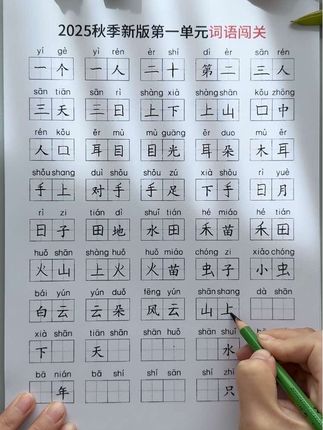 2025秋季新版第一单元词语闯关
yí gè yì rén èr shí dì èr sān rén
一个 一人 二十 第二 三人
sān tiān sān rì shàng xià shàng shān kǒu zhōng
三天 三日 上下 上山 口中
rén kǒu ěr mù mù guāng ěr duo mù ěr
人口 耳目 目光 耳朵 木耳
shǒu shang duì shǒu shǒu zú xià shǒu rì yuè
手上 对手 手足 下手 日月
rì zi tián dì shuǐ tián hé miáo hé tián
日子 田地 水田 禾苗 禾田
huǒ shān shàng huǒ huǒ miáo chóng zi xiǎo chóng
火山 上火 火苗 虫子 小虫
bái yún yún duǒ fēng yún shān shang dà shān
白云 云朵 风云 山上
xià tiān shān shān huǒ shān shuǐ
下 天 水
bā nián
年 只